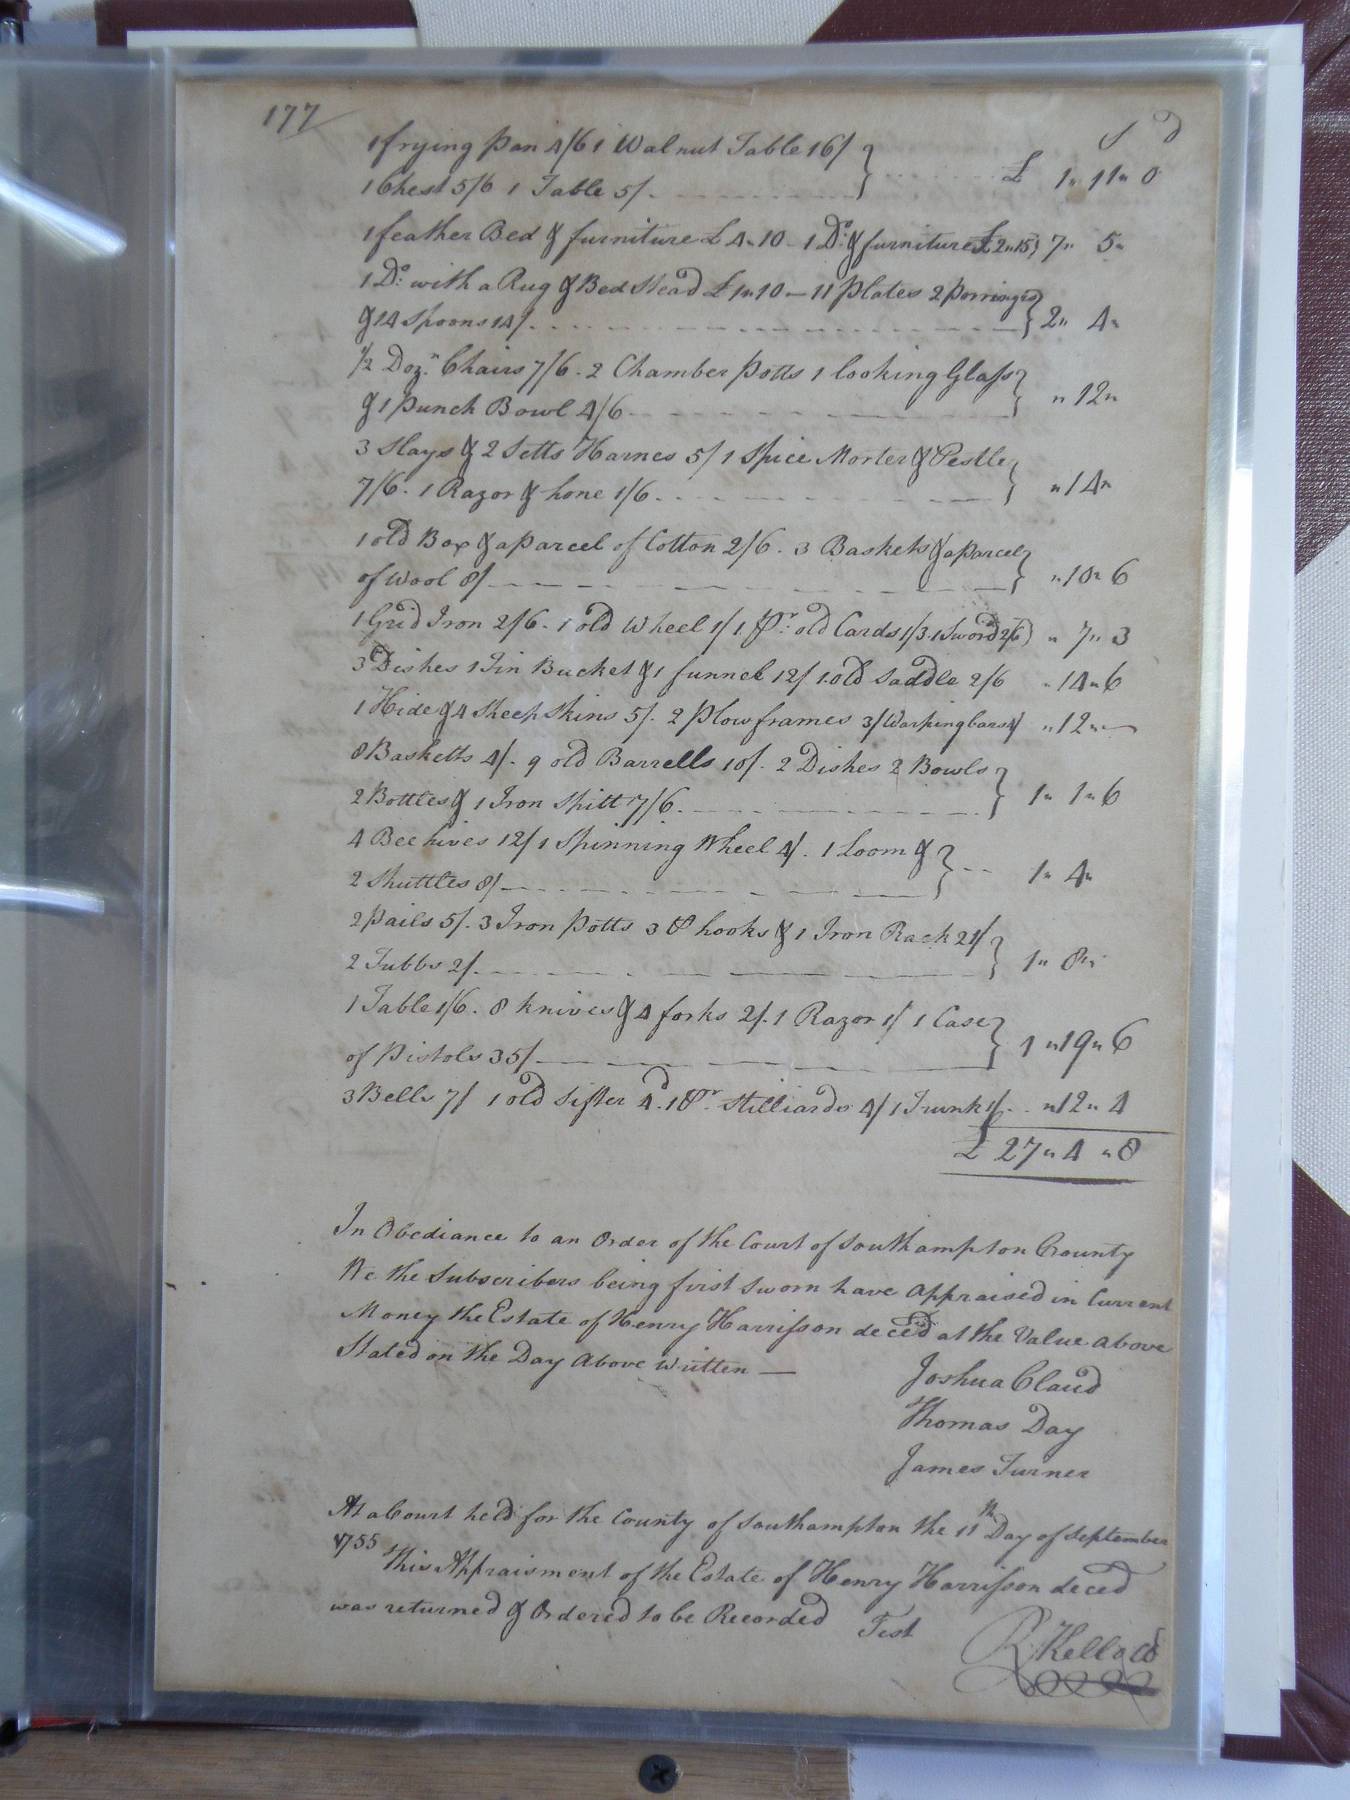 177
S d
1 frying Pan 4/6 1 Walnut Table 16/ }
1 Chest 5/6 1 Table 5/. } £ 1 " 11 " 0
1 feather Bed & furniture £ 4 " 10 - 1 Do. & furniture £ 2 " 15 } 7 " 5 "
1 Do. with a Rug & Bed Stead £ 1 " 10 — 11 Plates 2 Porringrs }
& 14 Spoons 14/. } 2 " 4 "
1/2 Dozn. Chairs 7/6 - 2 Chamber Potts 1 looking Glass }
& 1 Punch Bowl 4/6 } " 12 "
3 Slays & 2 Setts Harnes 5/ 1 Spice Morter & Pestle }
7/6. 1 Razor & hone 1/6 } " 14 "
1 old Box & a parcel of Cotton 2/6. 3 Baskets & a parcel }
of Wool 8/ } " 10 " 6
1 Grid Iron 2/6 - 1 old Wheel 1/ 1 Pr. old Cards 1/3. 1 Sword 2/6 } " 7 " 3
3 Dishes 1 Tin Bucket & 1 funnel 12/ 1 old Saddle 2/6 " 14 " 6
1 Hide & 4 Sheep Skins 5/. 2 Plow frames 3/ Warping bars 4/ " 12 " —
8 Basketts 4/. 9 old Barrells 10/. 2 Dishes 2 Bowls }
2 Bottles & 1 Iron Spitt 7/6. } 1 " 1 " 6
4 Bee hives 12/ 1 Spinning Wheel 4/. 1 Loom & }
2 Shuttles 8/ } 1 " 4 "
2 Pails 5/. 3 Iron Potts 3 Pr hooks & 1 Iron Rack 21/ }
2 Tubbs 2/. } 1 " 8 "
1 Table 1/6. 8 knives & 4 forks 2/. 1 Razor 1/ 1 Case }
of Pistols 35/ } 1 " 19 " 6
3 Bells 7/ 1 old Sifter 4d. 1 Pr. Stilliards 4/ 1 Trunk 1/. " 12 " 4
£ 27 " 4 " 8
In Obediance to an Order of the Court of Southampton County
We the Subscribers being first Sworn have Appraised in Current
Money the Estate of Henry Harrisson deced at the Value above
Stated on the Day Above written —
Joshua Claud
Thomas Day
James Turner
At a Court held for the County of Southampton the 11th Day of September
1755
This Appraisment of the Estate of Henry Harrisson deced
was returned & Ordered to be Recorded Test
R Kello Cl